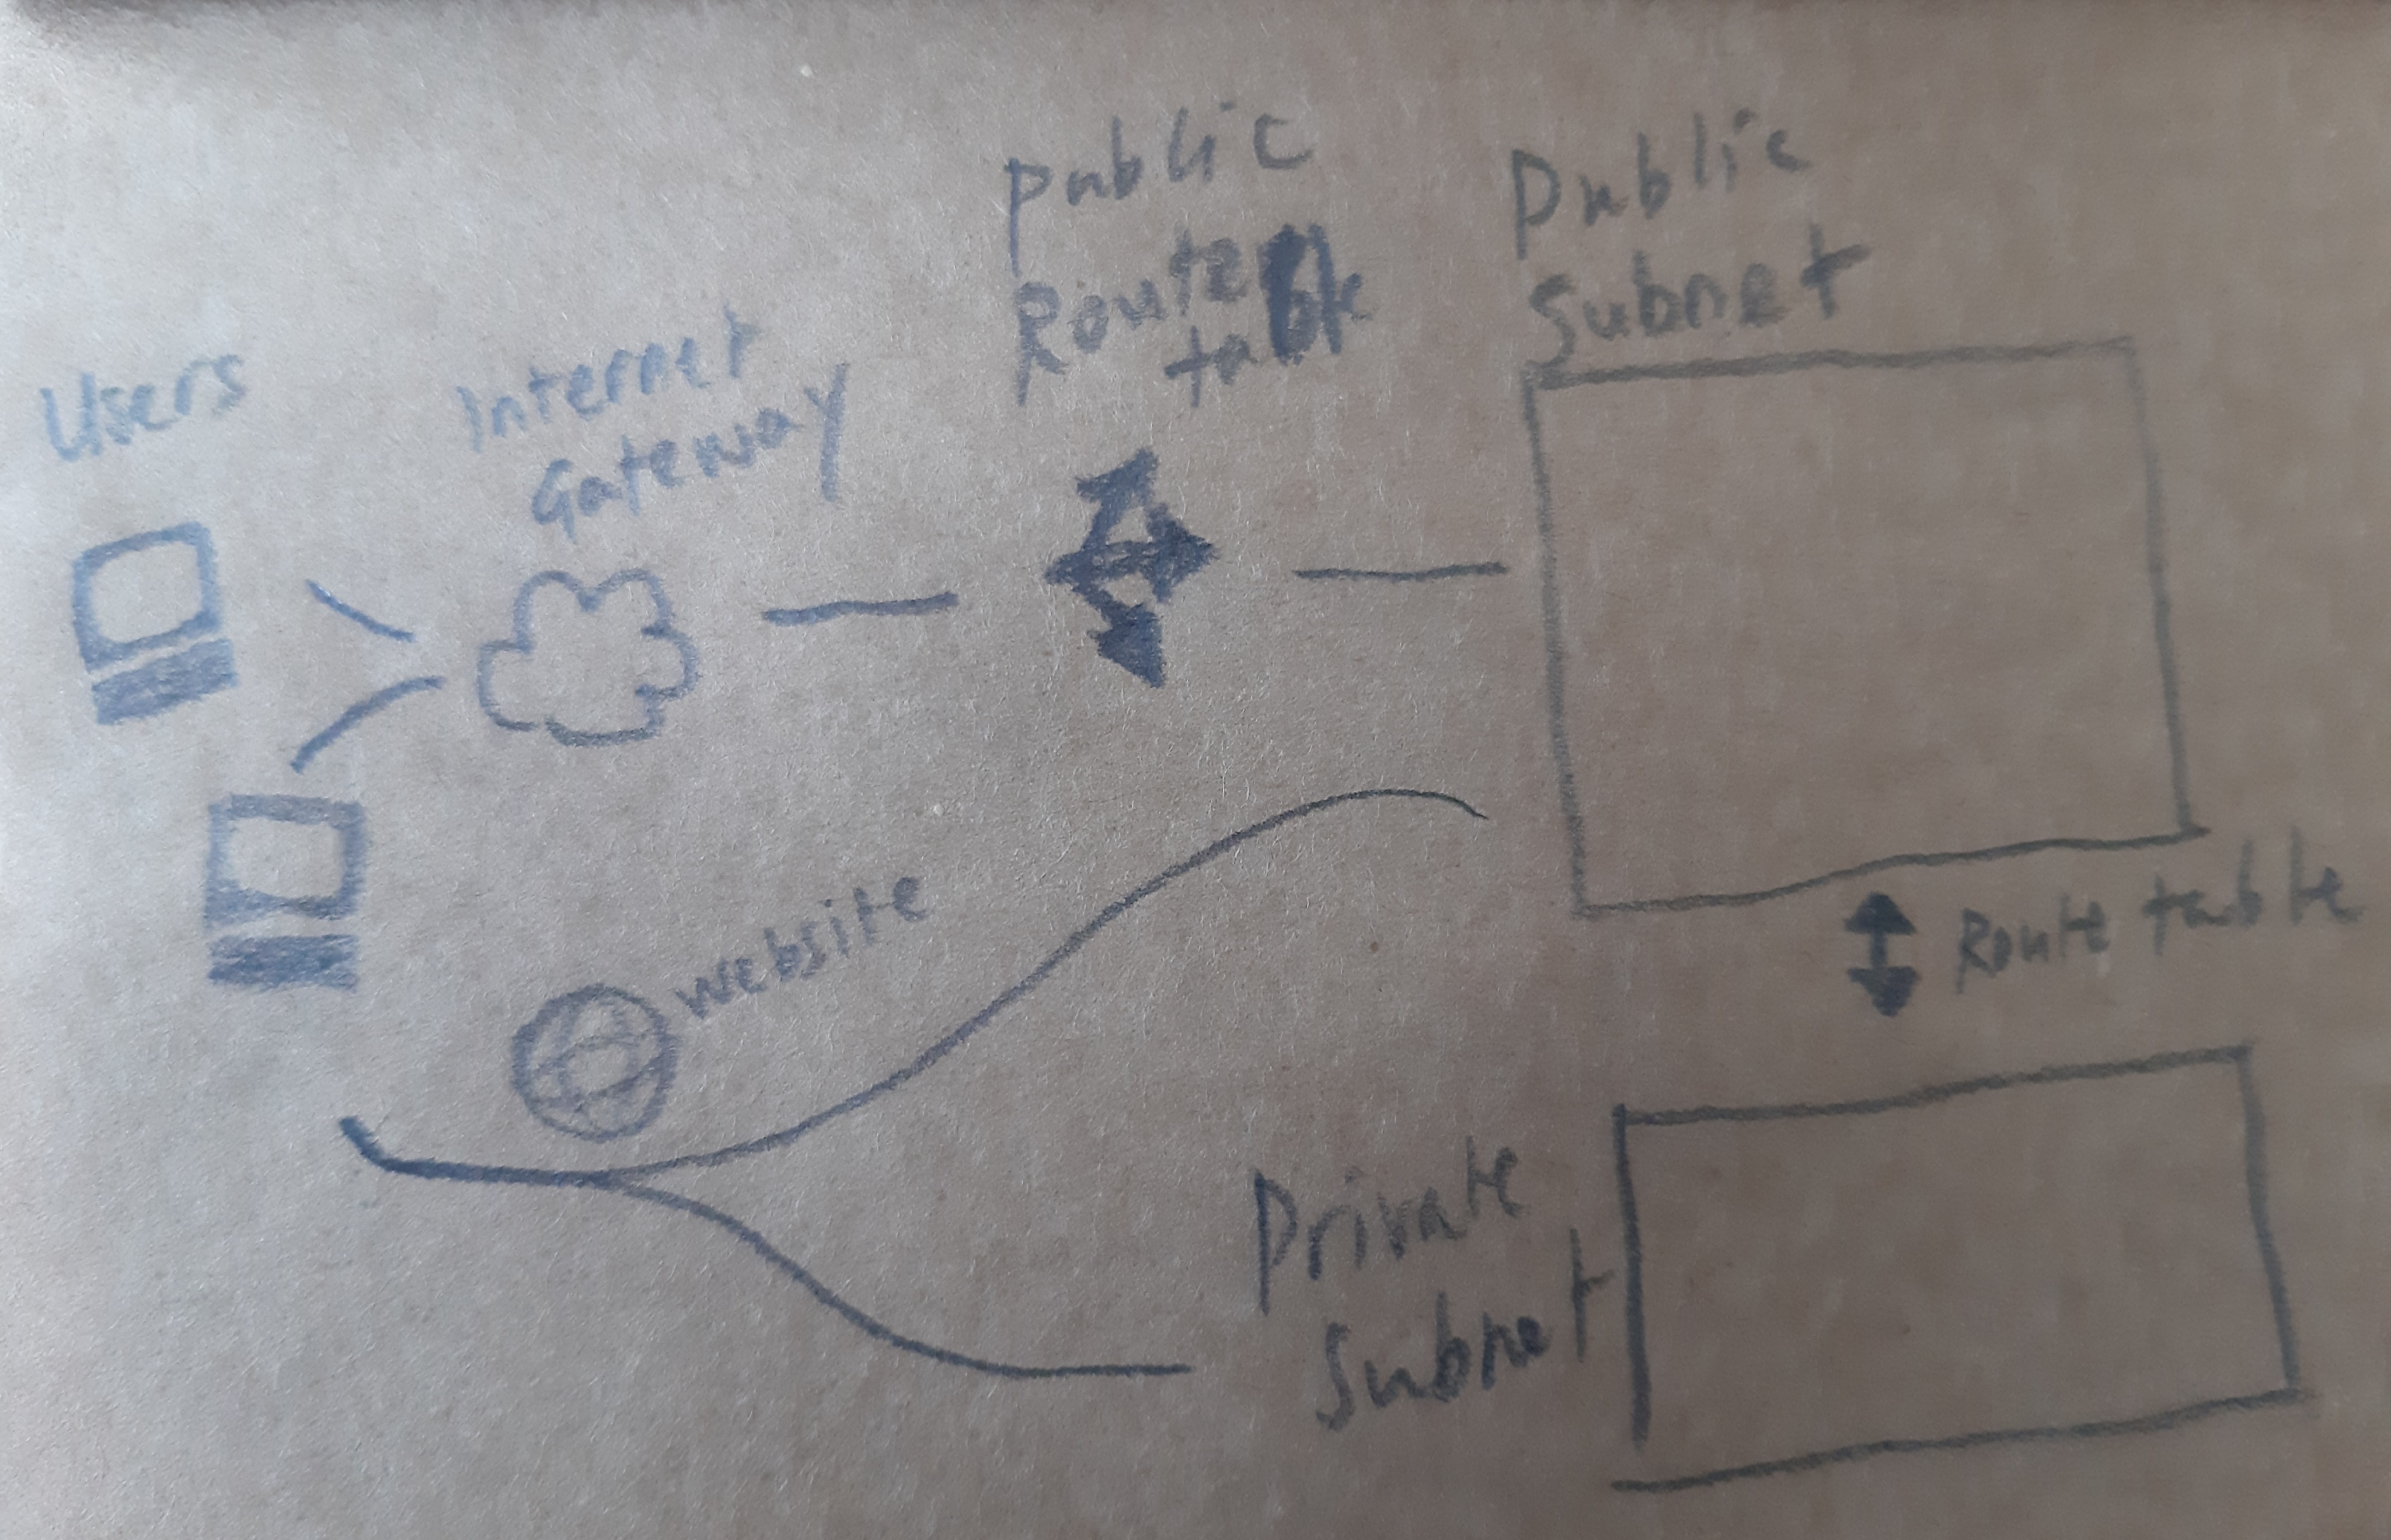 Users
Internet
Gateway
public
Route
table
Public
Subnet
website
Route table
Private
Subnet